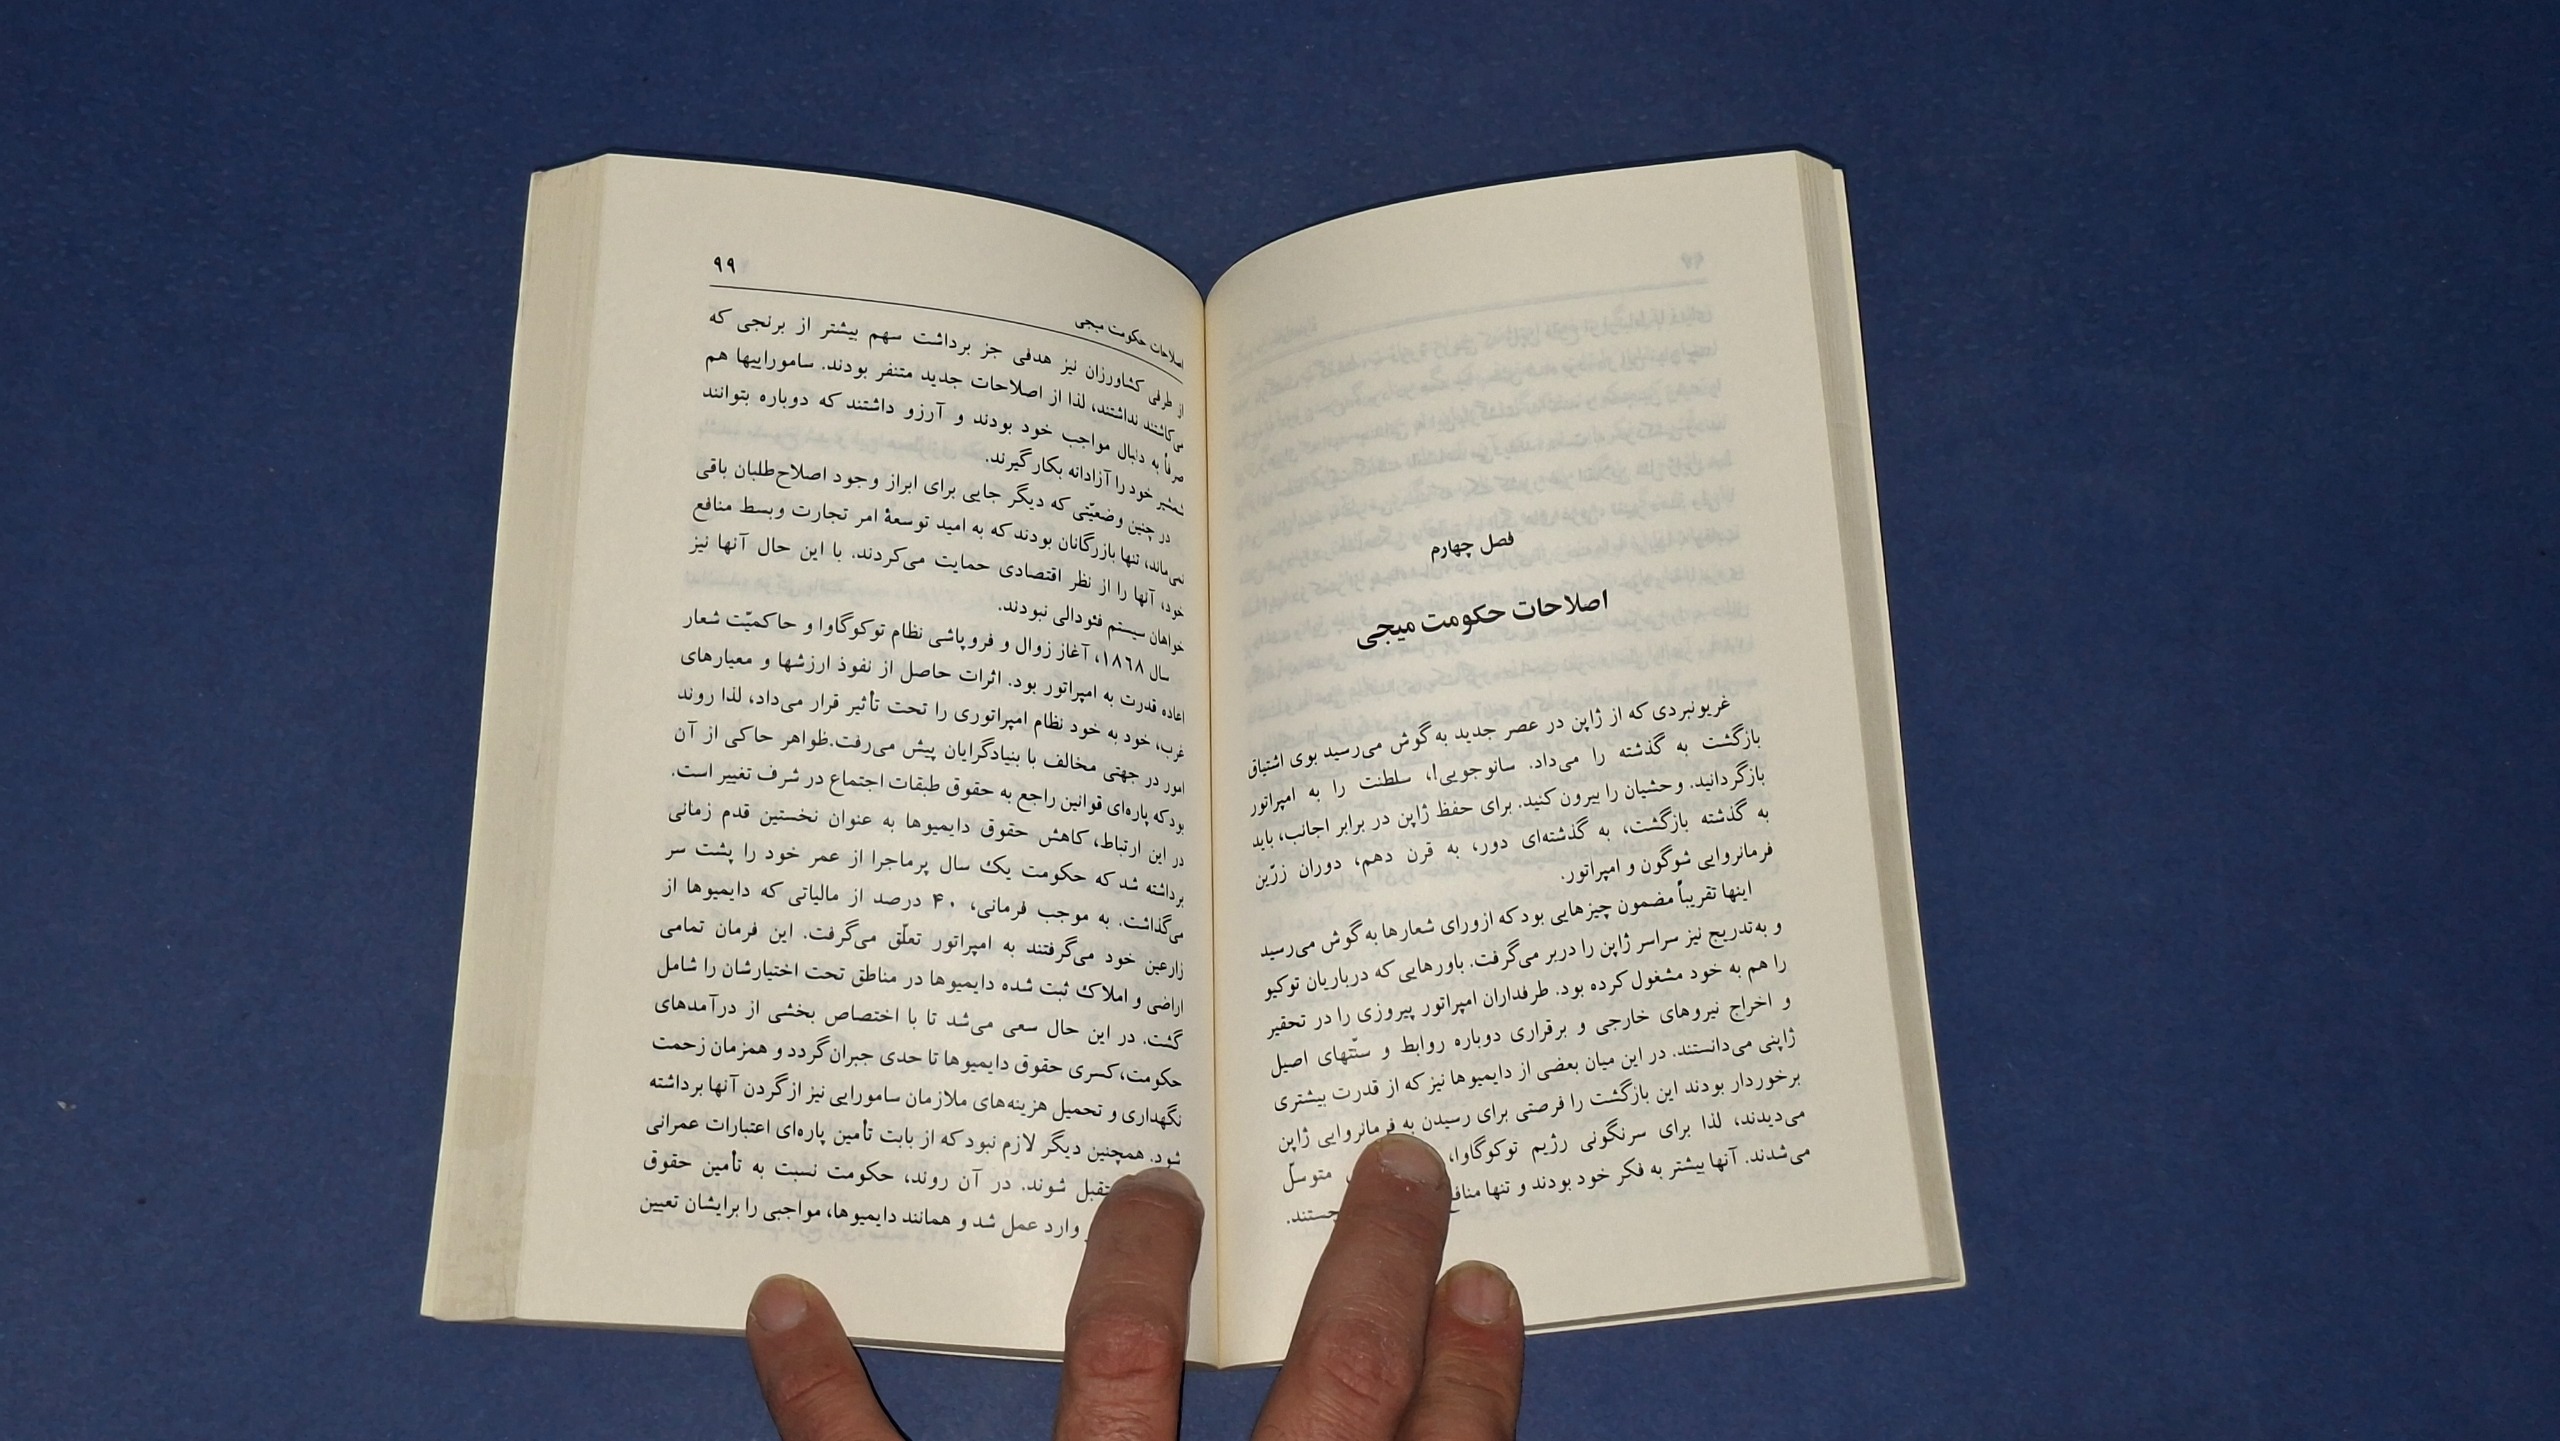 فصل چهارم
اصلاحات حکومت میجی
غریونبردی که از ژاپن در عصر جدید به گوش می‌رسید بوی اشتیاق
بازگشت به گذشته را می‌داد. سانوجویی!، سلطنت را به امپراتور
بازگردانید. وحشیان را بیرون کنید. برای حفظ ژاپن در برابر اجانب، باید
به گذشته بازگشت، به گذشته‌ای دور، به قرن دهم، دوران زرّین
فرمانروایی شوگون و امپراتور.
اینها تقریباً مضمون چیزهایی بود که ازورای شعارها به گوش می‌رسید
و به‌تدریج نیز سراسر ژاپن را دربر می‌گرفت. باورهایی که درباریان توکیو
را هم به خود مشغول کرده بود. طرفداران امپراتور پیروزی را در تحقیر
و اخراج نیروهای خارجی و برقراری دوباره روابط و سنّتهای اصیل
ژاپنی می‌دانستند. در این میان بعضی از دایمیوها نیز که از قدرت بیشتری
برخوردار بودند این بازگشت را فرصتی برای رسیدن به فرمانروایی ژاپن
می‌دیدند، لذا برای سرنگونی رژیم توکوگاوا، متوسلّ
می‌شدند. آنها بیشتر به فکر خود بودند و تنها
۹۹
اصلاحات حکومت میجی
از طرفی کشاورزان نیز هدفی جز برداشت سهم بیشتر از برنجی که
می‌کاشتند نداشتند، لذا از اصلاحات جدید متنفر بودند. ساموراییها هم
صرفاً به دنبال مواجب خود بودند و آرزو داشتند که دوباره بتوانند
شمشیر خود را آزادانه بکار گیرند.
در چنین وضعیّتی که دیگر جایی برای ابراز وجود اصلاح‌طلبان باقی
نمی‌ماند، تنها بازرگانان بودند که به امید توسعهٔ امر تجارت وبسط منافع
خود، آنها را از نظر اقتصادی حمایت می‌کردند. با این حال آنها نیز
خواهان سیستم فئودالی نبودند.
سال ۱۸۶۸، آغاز زوال و فروپاشی نظام توکوگاوا و حاکمیّت شعار
اعاده قدرت به امپراتور بود. اثرات حاصل از نفوذ ارزشها و معیارهای
غرب، خود به خود نظام امپراتوری را تحت تأثیر قرار می‌داد، لذا روند
امور در جهتی مخالف با بنیادگرایان پیش می‌رفت.ظواهر حاکی از آن
بود که پاره‌ای قوانین راجع به حقوق طبقات اجتماع در شرف تغییر است.
در این ارتباط، کاهش حقوق دایمیوها به عنوان نخستین قدم زمانی
برداشته شد که حکومت یک سال پرماجرا از عمر خود را پشت سر
می‌گذاشت. به موجب فرمانی، ۴۰ درصد از مالیاتی که دایمیوها از
زارعین خود می‌گرفتند به امپراتور تعلّق می‌گرفت. این فرمان تمامی
اراضی و املاک ثبت شده دایمیوها در مناطق تحت اختیارشان را شامل
گشت. در این حال سعی می‌شد تا با اختصاص بخشی از درآمدهای
حکومت،کسری حقوق دایمیوها تا حدی جبران گردد و همزمان زحمت
نگهداری و تحمیل هزینه‌های ملازمان سامورایی نیز از گردن آنها برداشته
شود. همچنین دیگر لازم نبود که از بابت تأمین پاره‌ای اعتبارات عمرانی
شوند. در آن روند، حکومت نسبت به تأمین حقوق
وارد عمل شد و همانند دایمیوها، مواجبی را برایشان تعیین